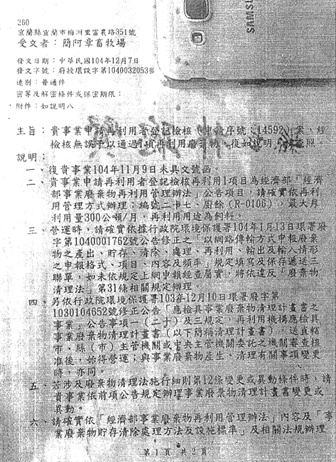 SAMSUNG
260
宜蘭縣宜蘭市梅洲里富農路351號
受文者：簡阿章畜牧場
發文日期：中華民國104年12月7日
發文字號：府授環設字第1040032053號
速別：普通件
密等及解密條件或保密期限：
附件：如說明八
主旨：貴事業申請再利用者登記檢核（申報序號：14592）案，經
檢核無誤予以通過1項再利用廢棄物，復如說明，請 查照。
說明：
一、復貴事業104年11月9日未具文號函。
二、貴事業申請再利用者登記檢核再利用1項目為經濟部「經濟
部事業廢棄物再利用管理辦法」公告項目，請確實依再利
用管理方式辦理：編號二十七、廚餘（R-0106），最大月
利用量300公噸/月，再利用用途為飼料。
三、營運時，請確實依據行政院環境保護署104年1月13日環署廢
字第1040001762號公告修正之「以網路傳輸方式申報廢棄
物之產出、貯存、清除、處理、再利用、輸出及輸入情形
之申報格式、項目、內容及頻率」規定填寫及保存遞送三
聯單，如未依規定上網申報經查屬實，將依違反「廢棄物
清理法」第31條相關規定辦理。
四、另依行政院環境保護署103年12月10日環署廢字第
1030104652號修正公告「應檢具事業廢棄物清理計畫書之
事業」公告事項一（二十）及三規定，再利用機構應檢具
事業廢棄物清理計畫書（以下簡稱清理計畫書），送直轄
市、縣（市）主管機關或中央主管機關委託之機關審查核
准後，始得營運；與事業廢棄物產生、清理有關事項變更
時，亦同。
五、若涉及廢棄物清理法施行細則第12條變更或異動條件時，請
貴事業依前項公告規定辦理事業廢棄物清理計畫書變更或
異動。
六、請確實依「經濟部事業廢棄物再利用管理辦法」內容及「事
業廢棄物貯存清除處理方法及設施標準」及相關法規辦理
第1頁 共2頁